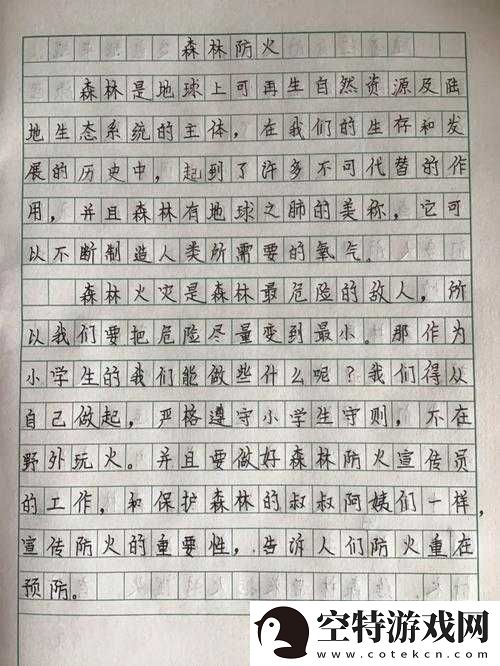 森林防火
森林是地球上可再生自然资源及陆
地生态系统的主体，在我们的生存和发
展的历史中，起到了许多不可代替的作
用，并且森林有地球之肺的美称，它可
以不断制造人类所需要的氧气。
森林火灾是森林最危险的敌人，所
以我们要把危险尽量变到最小。那作为
小学生的我们能做些什么呢？我们得从
自己做起，严格遵守小学生守则，不在
野外玩火。并且要做好森林防火宣传员
的工作，和保护森林的叔叔阿姨们一样，
宣传防火的重要性，告诉人们防火重在
预防。
空特游戏网
www.cotekcn.com